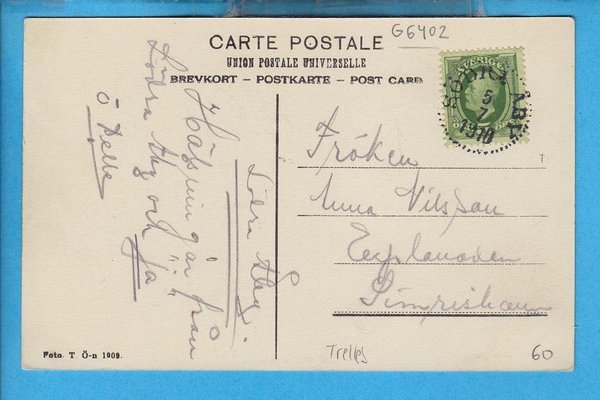 G6402
CARTE POSTALE
UNION POSTALE UNIVERSELLE
BREVKORT – POSTKARTE – POST CARD
SVERIGE
SÖDRA ÅBY
5
7
1910
Fröken
Anna Nilsson
Esplanaden
Simrishamn
Södra Åby
Hälsningar från
Södra Åby och
Foto. T Ö-n 1909.
Trelles
60